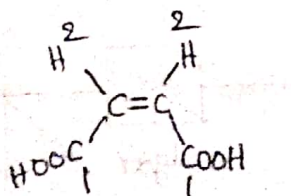 2 2
H H
C=C
HOOC COOH
1 1